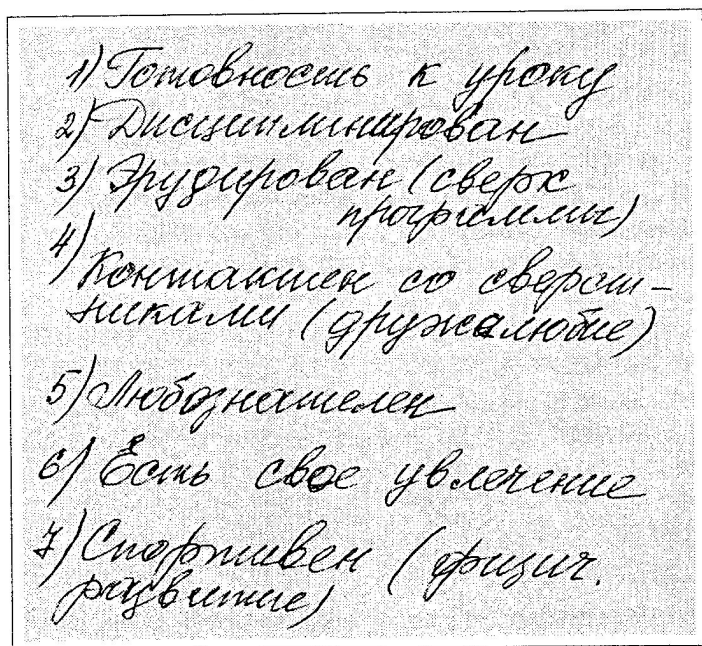 1) Готовность к уроку
2) Дисциплинирован
3) Эрудирован (сверх
программы)
4)
Контактен со сверст-
никами (дружелюбие)
5) Любознателен
6) Есть свое увлечение
7) Спортивен (физич.
развитие)